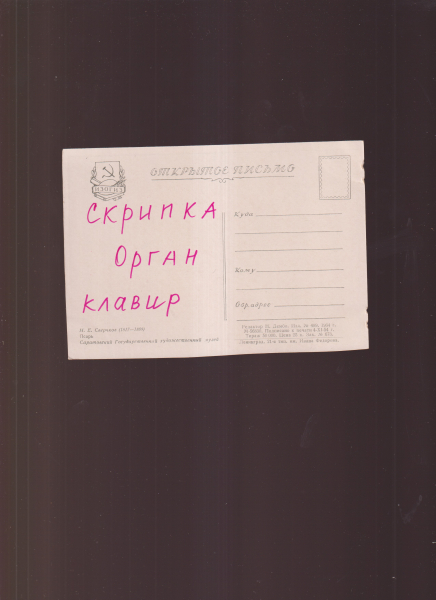 ОТКРЫТОЕ ПИСЬМО
ИЗОГИЗ
Скрипка
Орган
клавир
Куда
Кому
Обр. адрес
Н. Е. Сверчков (1817—1898)
Псарь
Саратовский Государственный художественный музей